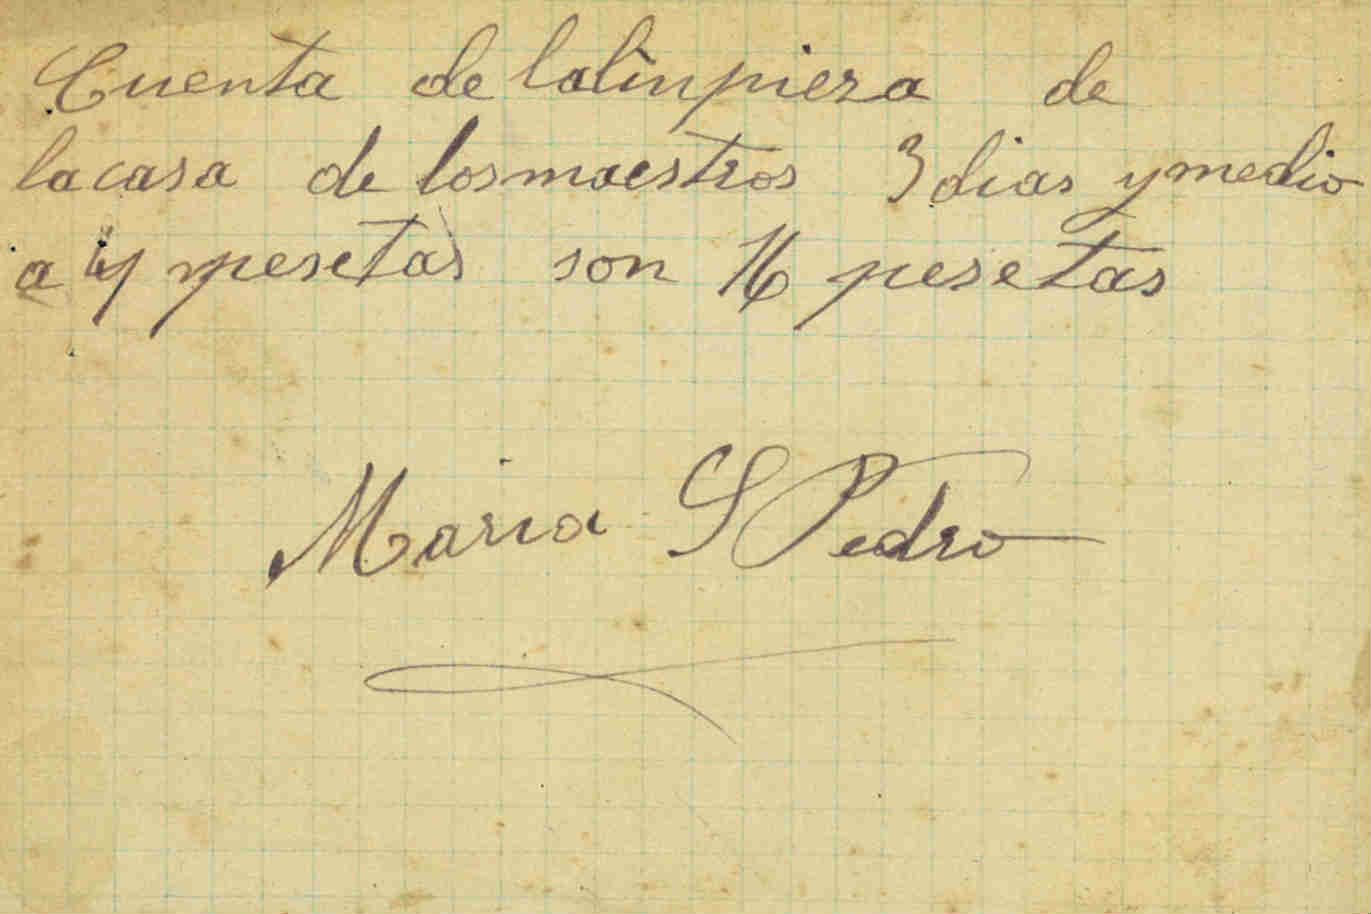 Cuenta de lalinpieza de
lacasa de losmaestros 3 dias ymedio
a 4 pesetas son 16 pesetas
Maria S Pedro